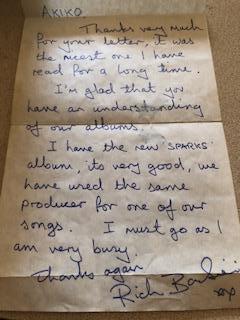 AKIKO
Thanks very much
for your letter, it was
the nicest one I have
read for a long time.
I'm glad that you
have an understanding
of our albums.
I have the new 'SPARKS'
album, its very good, we
have used the same
producer for one of our
songs. I must go as I
am very busy.
Thanks again
Rich
xox